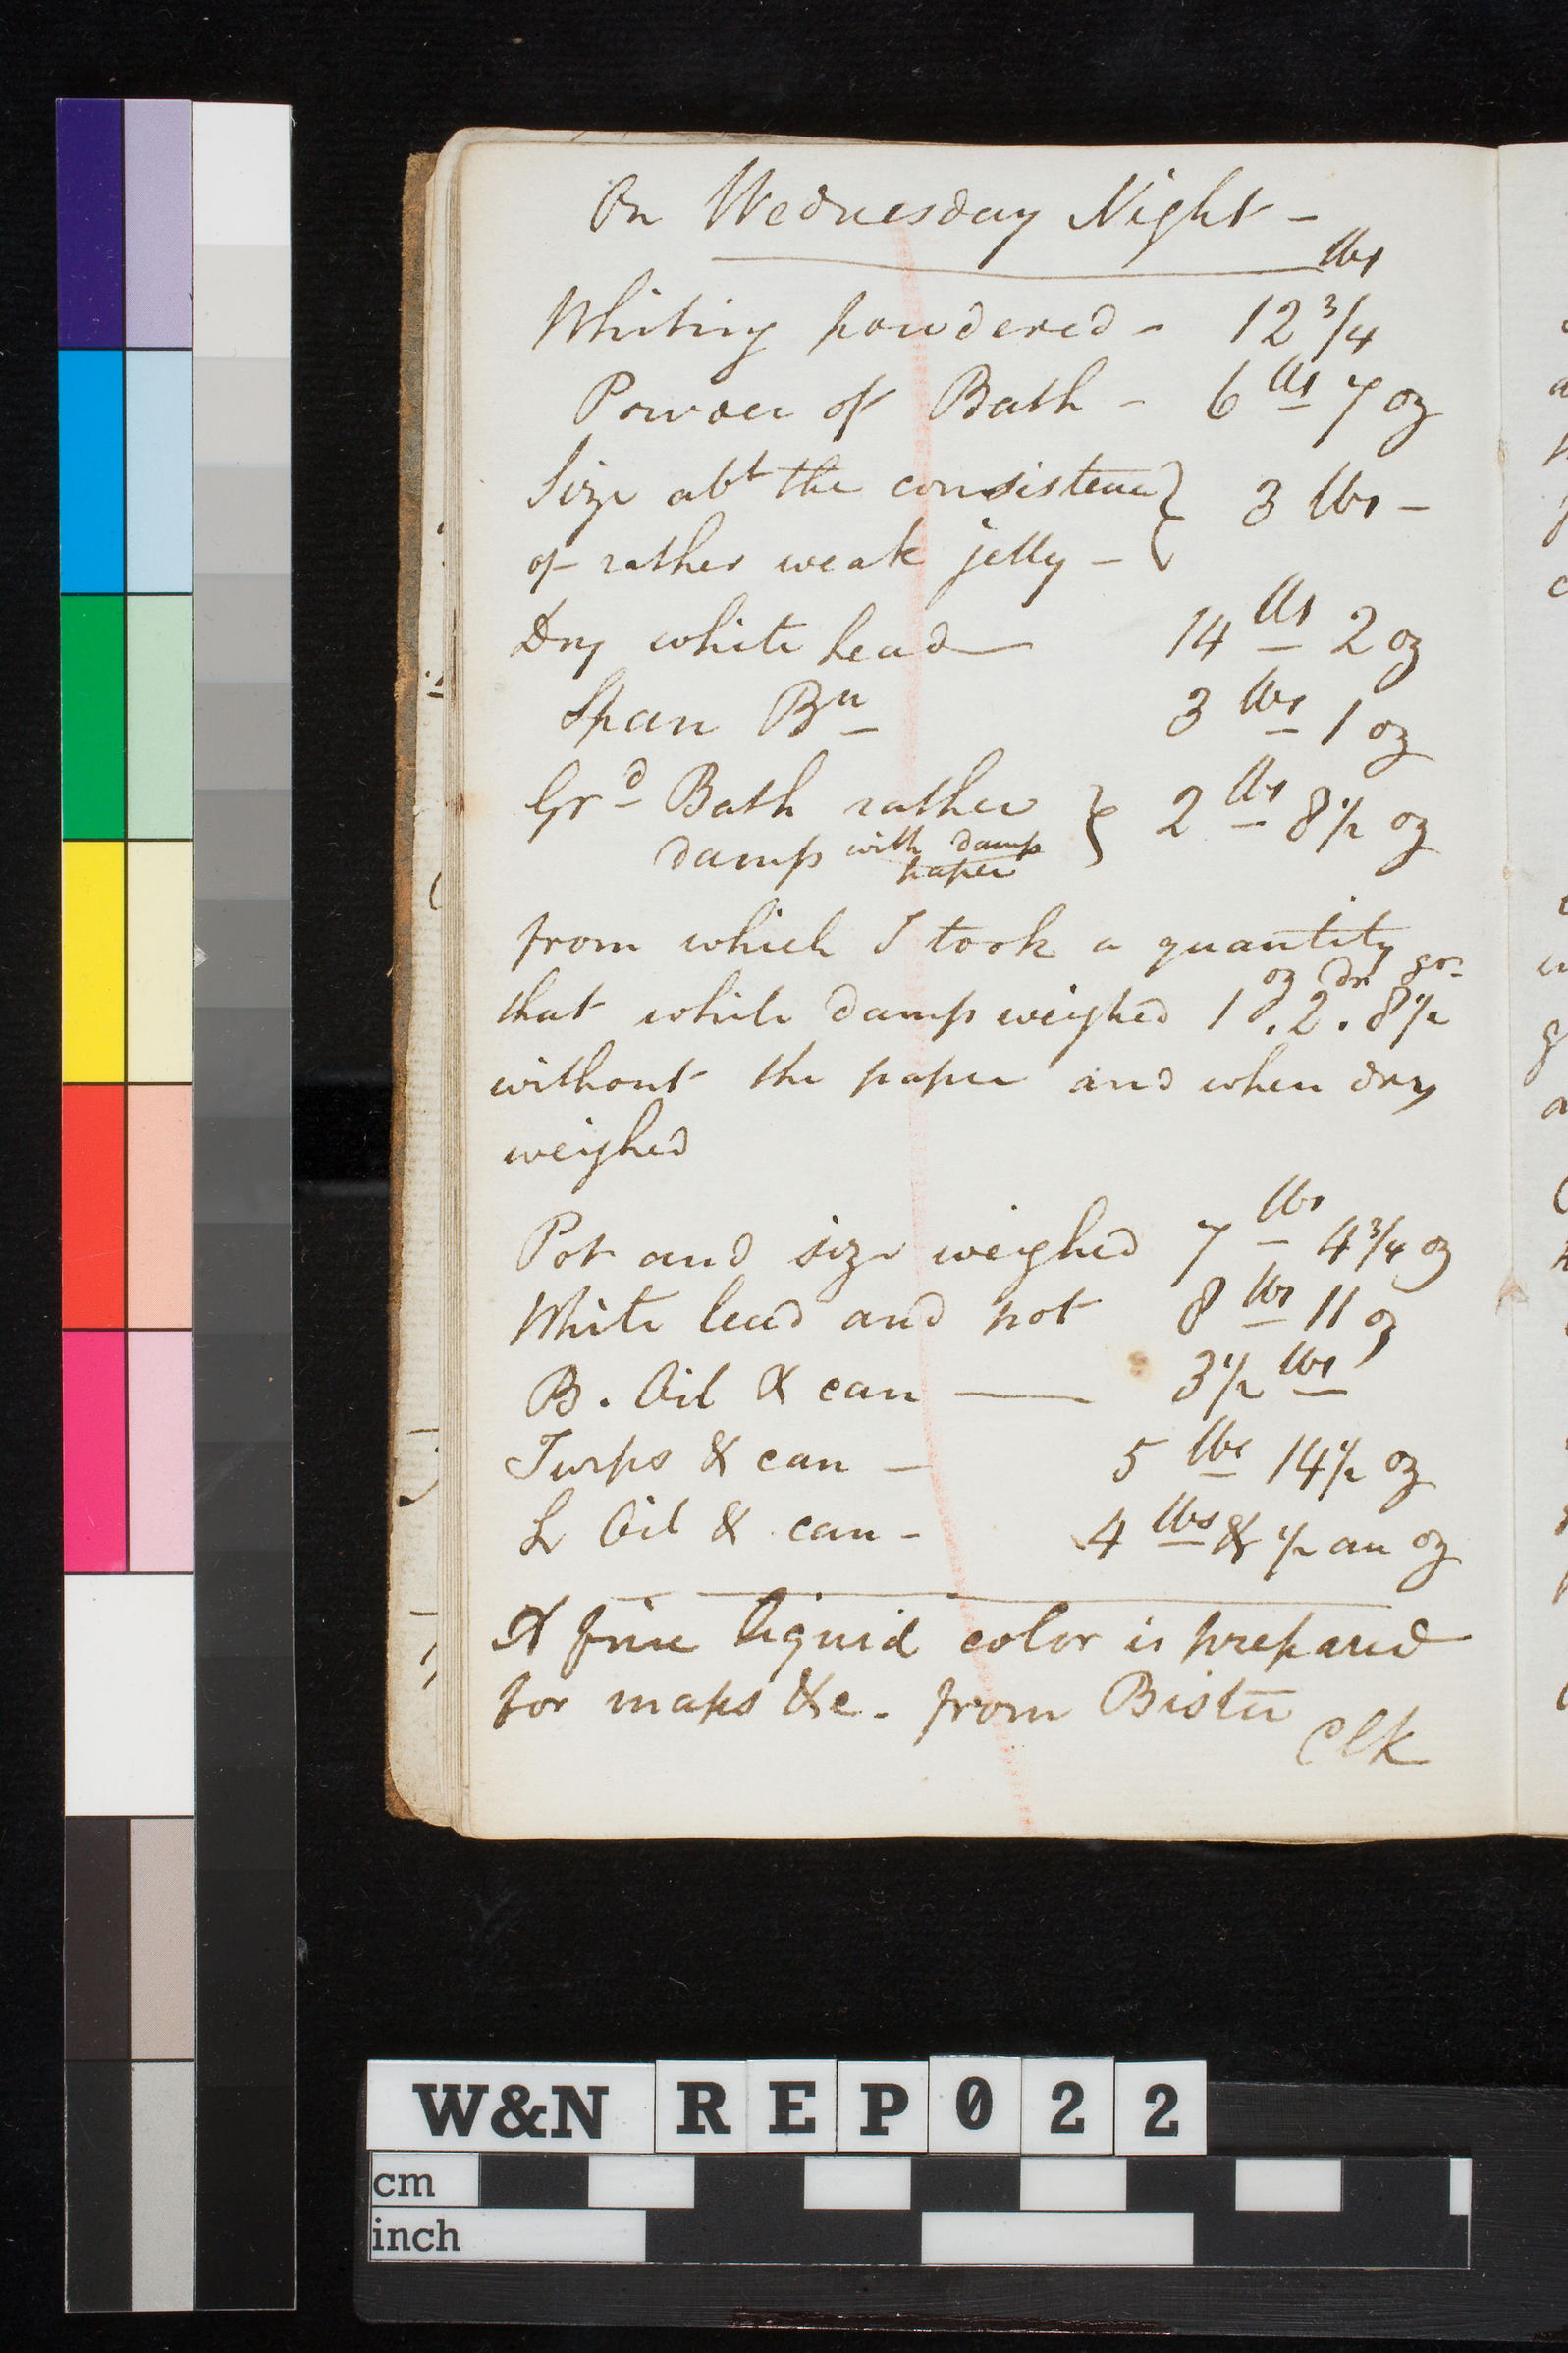 On Wednesday Night –
lbs
Whiting powdered – 12 3/4
Powder of Bath – 6 lbs 7 oz
Size abt the consistence } 3 lbs –
of rather weak jelly – }
Dry white lead — 14 lbs 2 oz
Span Bn 3 lbs 1 oz
Grd Bath rather } 2 lbs 8 1/2 oz
damp with damp
paper
from which I took a quantity
oz dr gr
that while damp weighed 1 . 2 . 8 1/2
without the paper and when dry
weighed
Pot and size weighed 7 lbs 4 3/4 oz
White lead and pot 8 lbs 11 oz
B. Oil & can — 3 1/2 lbs
Turps & can – 5 lbs 14 1/2 oz
L Oil & can – 4 lbs & 1/2 an oz
A fine liquid color is prepared
for maps &c. from Bistre
Clk
W&N REP022
cm
inch